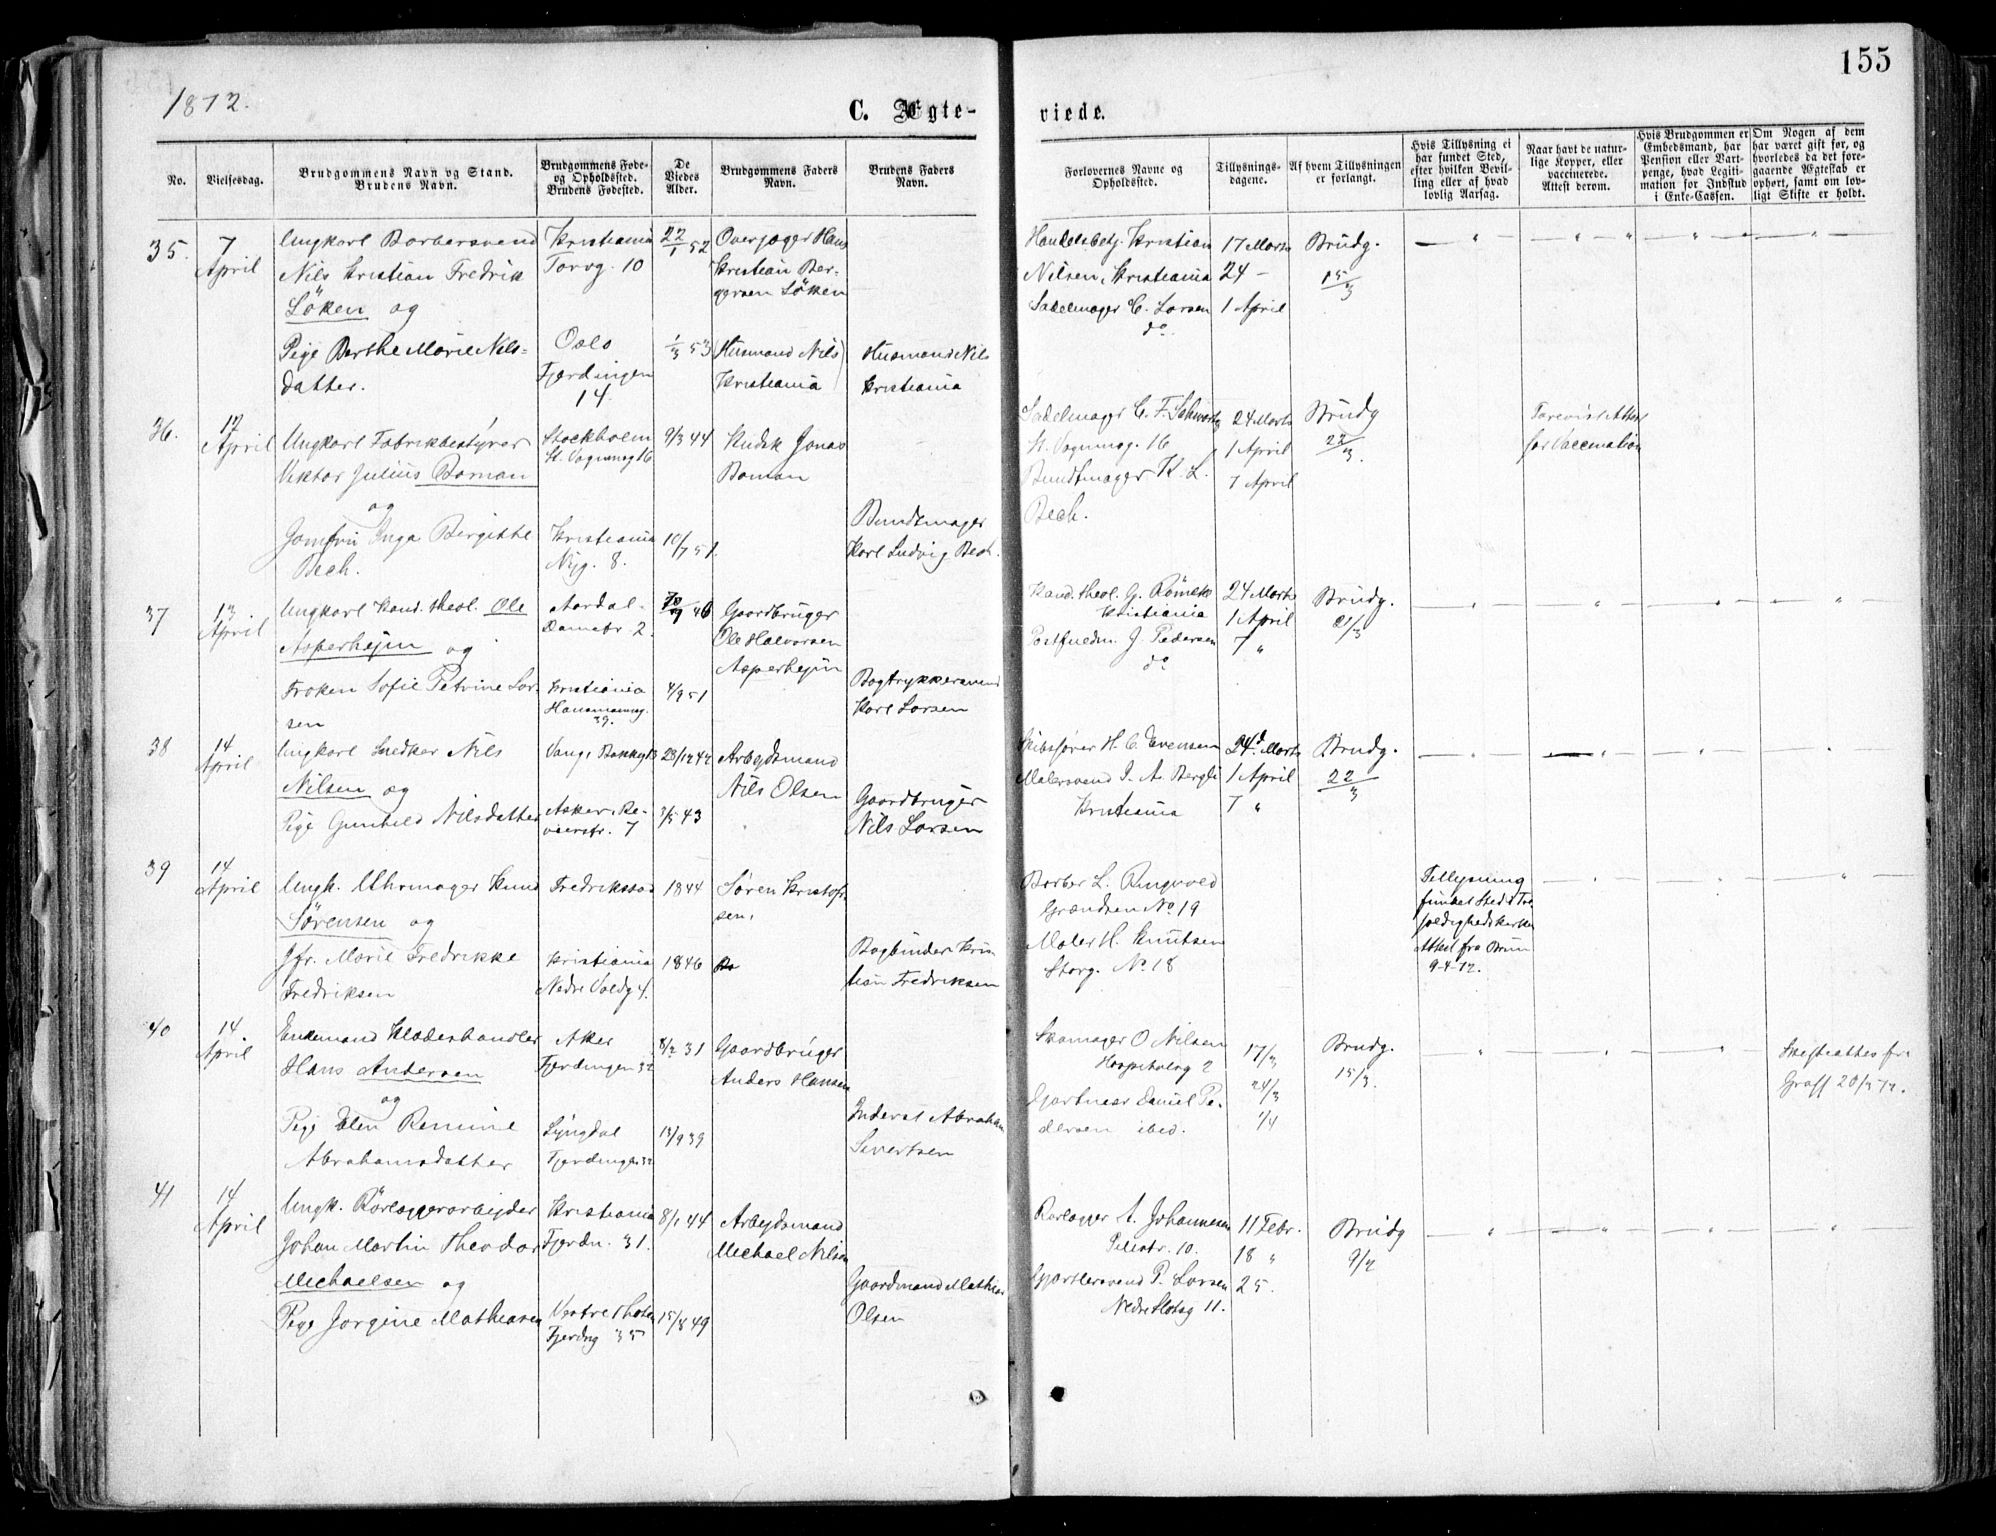 155
1872.
C. Ægte-
viede.
No.
Vielsesdag.
Brudgommens Navn og Stand.
Brudens Navn.
Brudgommens Føde-
og Opholdssted.
Brudens Fødested.
De
Viedes
Alder.
Brudgommens Faders
Navn.
Brudens Faders
Navn.
Forlovernes Navne og
Opholdssted.
Tillysnings-
dagene.
Af hvem Tillysningen
er forlangt.
Hvis Tillysning ei
har fundet Sted,
efter hvilken Bevil-
ling eller af hvad
lovlig Aarsag.
Naar havt de natur-
lige Kopper, eller
vaccinerede.
Attest derom.
Hvis Brudgommen er
Embedsmand, har
Pension eller Vart-
penge, hvad Legiti-
mation for Indskud
i Enke-Cassen.
Om Nogen af dem
har været gift før, og
hvorledes da det fore-
gaaende Ægteskab er
ophørt, samt om lov-
ligt Skifte er holdt.
35.
7
April
Ungkarl Barbersvend
Nils Kristian Fredrik
Löken og
Pige Berthe Marie Nils-
datter.
Kristiania
Torvg. 10
Oslo
Fjerdingen
14
22/1 52
1/3 53
Overjæger Hans
Kristian Ber-
gersen Löken
(Husmand Nils)
Kristiania
Husmand Nils
Kristiania
Handelsbetj. Kristian
Nilsen, Kristiania
Sadelmager C. Larsen
do.
17 Marts
24 –
1 April
Brudg.
15/3
36.
12
April
Ungkarl Fabrikbestyrer
Viktor Julius Boman
og
Jomfru Inga Bergitte
Bech.
Stockholm
St. Vognmg 16
Kristiania
Nyg. 8.
9/3 44
10/7 51.
Kudsk Jonas
Boman
Bundtmager
Karl Ludvig Bech.
Sadelmager C. F. Schwartz
St. Vognmg. 16
Bundtmager K. L.
Bech.
24 Marts
1 April
7 April
Brudg
22/3.
Forevist Attest
for Vaccination
37
13
April
Ungkarl Kand. theol. Ole
Asperhejm og
Frøken Sofie Petrine Lar-
sen
Aardal-
Damstr 2.
Kristiania
Hausmannsg.
39.
46
4/9 51
Gaardbruger
Ole Halvorsen
Asperhejm
Bogtrykkersvend
Karl Larsen
Kand. theol. G.
Kristiania
Postfuldm. J. Pedersen
do
24 Marts
1 April
7 "
Brudg.
21/3
38
14
April
Ungkarl Snedker Nils
Nilsen og
Pige Gunhild Nilsdatter
Vang
Asker, Re-
vierstr. 7
28/12 42
3/5 43
Arbejdsmand
Nils Olsen
Gaardbruger
Nils Larsen
Skibsfører H. C. Evensen
Malersvend I. A. Bergli
Kristiania
24d Marts
1 April
7 "
Brudg.
22/3
39
14
April
Ungk. Uhrmager Knud
Sörensen og
Jfr. Marie Fredrikke
Fredriksen
Fredriksstad
Kristiania
Nedre Voldg 4.
1844
1846
Sören Kristof-
sen.
Bogbinder Kris-
tian Fredriksen
Barber L. Ringvold
Grændsen No 19
Maler H. Knutsen
Storg. No 18
Tillysning
fundet Sted i Tre-
foldighedskirken
Attest fra Bruun
9-4-72.
40
14.
April
Enkemand Klædeshandler
Hans Andersen
og
Pige Elen Renine
Abrahamsdatter
Aker
Fjerdingen 32
Lyngdal
Fjerdingen 32
8/2 31
13/9 39
Gaardbruger
Anders Hansen
Inderst Abraham
Sivertsen
Skomager O Nilsen
Hospitalsg 2
Gjartner Daniel Pe-
dersen ibid.
17/3
24/3
1/4
Brudg.
15/3.
Skifteattest fra
Graff 20/3 72.
41
14
April
Ungk. Rörlæggerarbejder
Johan Martin Theodor
Michaelsen og
Pige Jørgine Mathiasen
Kristiania
Fjerdn. 31.
Vestre Thoten
Fjerdng 35
8/1 44
15/8 49
Arbejdsmand
Michael Nilsen
Gaardmand Mathias
Olsen
Rørlægger A. Johannesen
Pilestr. 10.
Gjørtlersvend P. Larsen
Nedre Slotsg 11.
11 Febr.
18 "
25.
Brudg
9/2